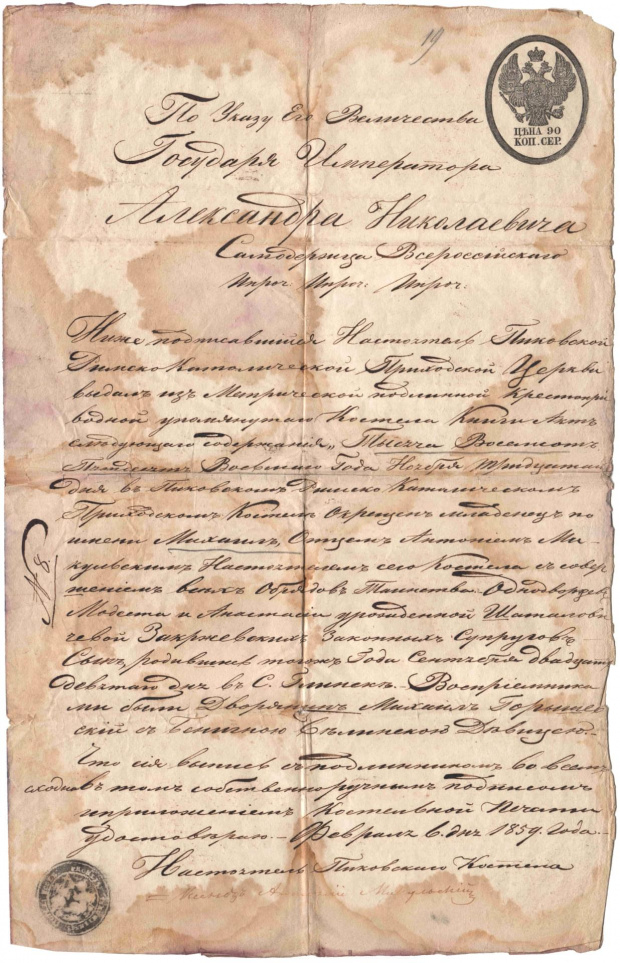 19
ЦѢНА 90
КОП. СЕР.
По Указу Его Величества
Государя Императора
Александра Николаевича
Самодержца Всероссійскаго
Ипроч: Ипроч: Ипроч:
Ниже подписавшійся Настоятель Пиковской
Римско Католической Приходской Церкви
выдалъ изъ Метрической подлинной Крестопри
водной упомянутаго Костела Книги Актъ
слѣдующаго содержанія „Тысяча Восемсотъ
Пятдесятъ Года Ноября тридцатаго
дня въ Пиковскомъ Римско Католическомъ
Приходскомъ Костелѣ Окрещенъ младенецъ по
имени Михаилъ, Отцемъ Антоніемъ Ми-
кульскимъ Настоятелемъ сего Костела съ совер
шеніемъ всѣхъ Обрядовъ Таинства. Однодворцевъ
№ 8.
Модеста и Анастасіи урожденной Шатало
чевой Закржевскихъ Законныхъ Супруговъ
Сынъ, родившійся тогожъ Года Сентября двадцать
девятаго дня въ С. Глинскѣ. Воспріемника
ми были Дворянинъ Михаилъ
скій съ Бенигною Дѣвицею.
Что сія выпись съ подлинникомъ во всемъ
сходна въ томъ собственноручнымъ подписомъ
и приложеніемъ Костельной Печати
удостовѣряю. Февраля 6. дня 1859. Года.
Настоятель Пиковскаго Костела
Ксендзъ Антоній Микульскій